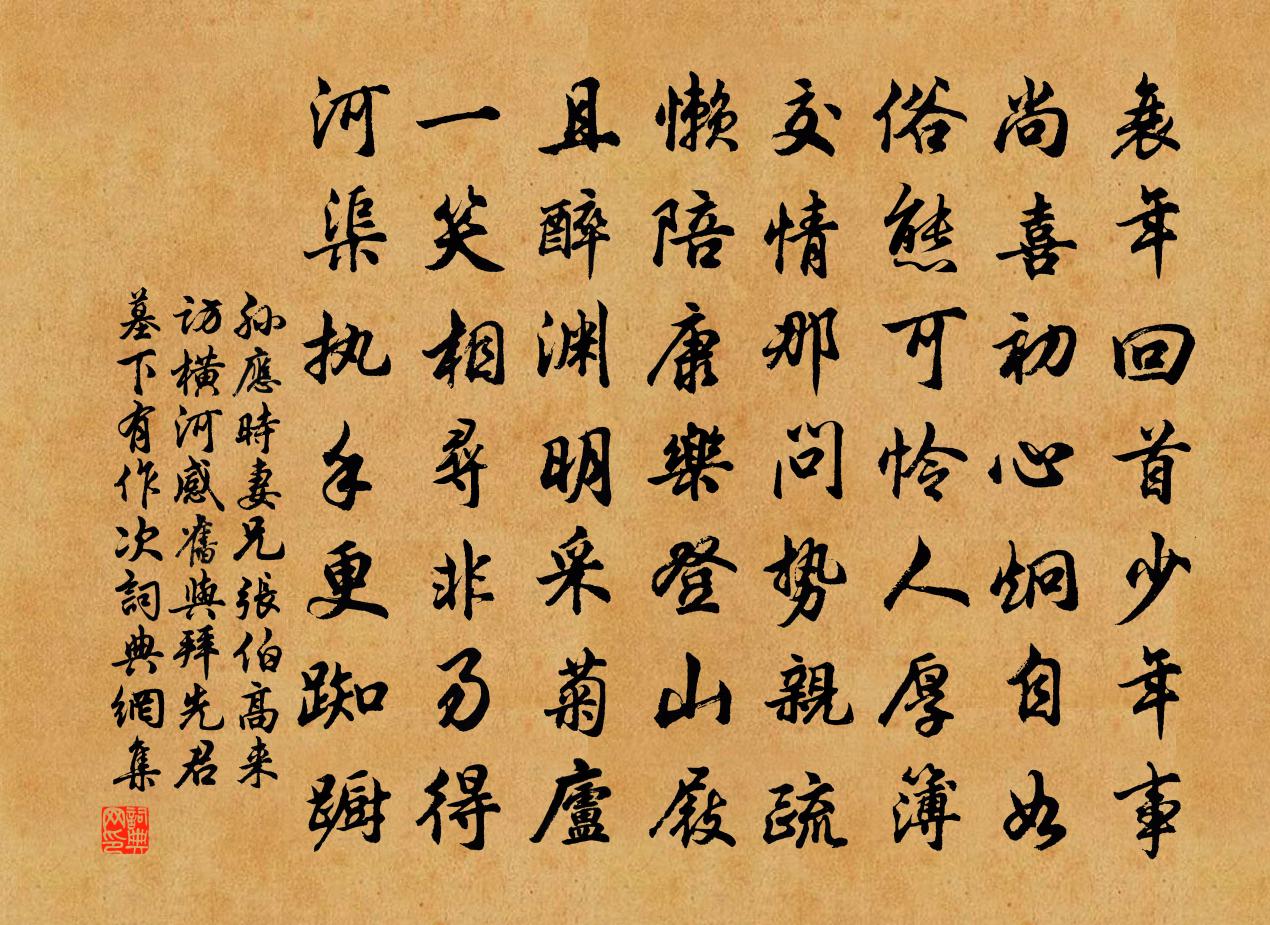 衰年回首少年事
尚喜初心炯自如
俗態可怜人厚簿
交情那问势親疏
懒陪康樂登山屐
且醉渊明采菊廬
一笑相尋非易得
河渠执手更踟蹰
孙應時妻兄張伯高来
访横河感舊與拜先君
墓下有作次詞典網集
詞典
网印